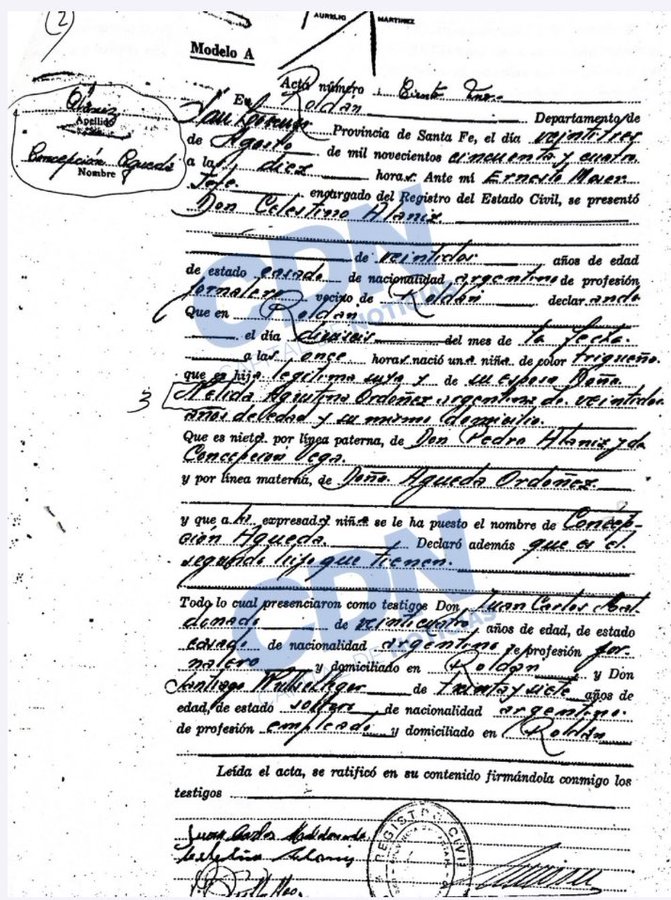 (2)
AURELIO MARTINEZ
Modelo A
Acta número Ciento
Alániz
Apellido
Concepción Agueda
Nombre
En Roldán
San Lorenzo Departamento de
Provincia de Santa Fe, el día veintitres
de Agosto de mil novecientos cincuenta y cuatro
a las diez horas. Ante mí Ernesto
Jefe encargado del Registro del Estado Civil, se presentó
Don Celestino Alaniz
de veintidos años de edad
de estado casado de nacionalidad argentino de profesión
jornalero vecino de Roldán declarando
Que en Roldan
el día dieciseis del mes de la fecha
a las once horas nació una niña de color trigueño
que es hija legítima suya y de su esposa Doña
3 Nélida Agustina Ordoñez argentina de veintidos
años de edad y su mismo domicilio.
Que es nieta por línea paterna, de Don Pedro Alaniz y de
Concepcion Vega.
y por línea materna, de Doña Agueda Ordoñez
y que a la expresada niña se le ha puesto el nombre de Concep-
ción Agueda. Declaró además que es el
segundo hijo que tienen.
Todo lo cual presenciaron como testigos Don Juan Carlos Mal-
donado de veinticuatro años de edad, de estado
casado de nacionalidad argentino de profesión jor-
nalero y domiciliado en Roldán y Don
Santiago de treinta y siete años de
edad, de estado soltero de nacionalidad argentino
de profesión empleado y domiciliado en Roldán
Leída el acta, se ratificó en su contenido firmándola conmigo los
testigos
Juan Carlos Maldonado
Celestino Alaniz
REGISTRO CIVIL
CDN
NOTICIAS
CDN
NOTICIAS